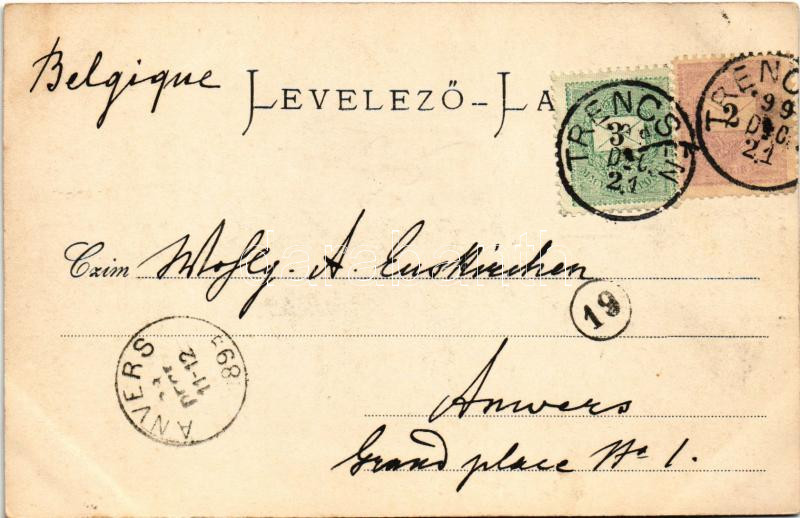 Belgique
LEVELEZŐ-LA
TRENCSÉN
3
DEC.
21
TRENC
99
2
DEC.
21
Czim Wohlg. A. Euskirchen
19
ANVERS
11-12
Anvers
Grand place No 1.